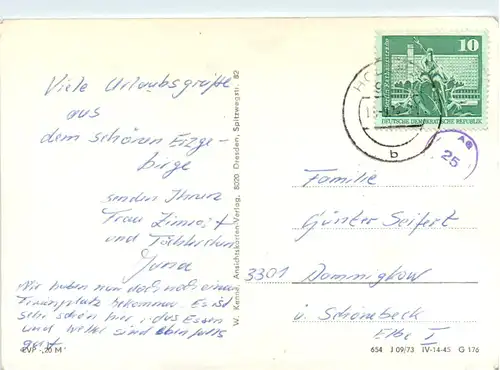 Viele Urlaubsgrüße
aus
dem schönen Erzge-
birge
senden Ihnen
Frau
und
Wir haben nun doch noch einen
bekommen. Es ist
sehr schön hier, das Essen
und Wetter sind ebenfalls
gut.
EVP -,20 M
W. Kenner, Ansichtskarten-Verlag, 8020 Dresden, Spitzwegstr. 82
10
DEUTSCHE DEMOKRATISCHE REPUBLIK
b
AG
25
Familie
Günter Seifert
3301 Dommigkow
ü. Schönebeck
Elbe I
654 J 09/73 IV-14-45 G 176